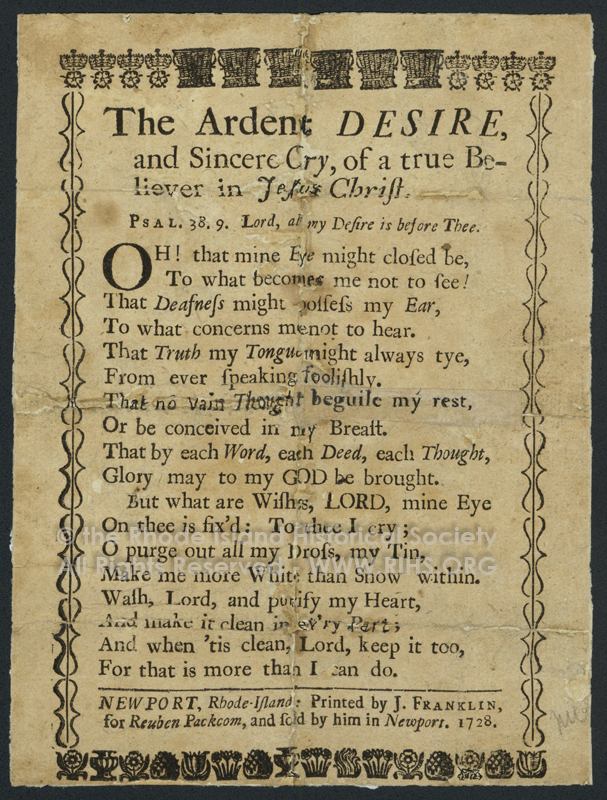 The Ardent DESIRE,
and Sincere Cry, of a true Be-
liever in Jeſus Chriſt.
PSAL. 38. 9. Lord, all my Deſire is before Thee.
OH! that mine Eye might cloſed be,
To what becomes me not to ſee!
That Deafneſs might poſſeſs my Ear,
To what concerns me not to hear.
That Truth my Tongue might always tye,
From ever ſpeaking fooliſhly.
That no vain Thought beguile my reſt,
Or be conceived in my Breaſt.
That by each Word, each Deed, each Thought,
Glory may to my GOD be brought.
But what are Wiſhes, LORD, mine Eye
On thee is fix'd: To thee I cry;
O purge out all my Droſs, my Tin,
Make me more White than Snow within.
Waſh, Lord, and purify my Heart,
And make it clean in ev'ry Part;
And when 'tis clean, Lord, keep it too,
For that is more than I can do.
NEWPORT, Rhode-Iſland: Printed by J. FRANKLIN,
for Reuben Packcom, and ſold by him in Newport. 1728.
© the Rhode Island Historical Society
All Rights Reserved - WWW.RIHS.ORG